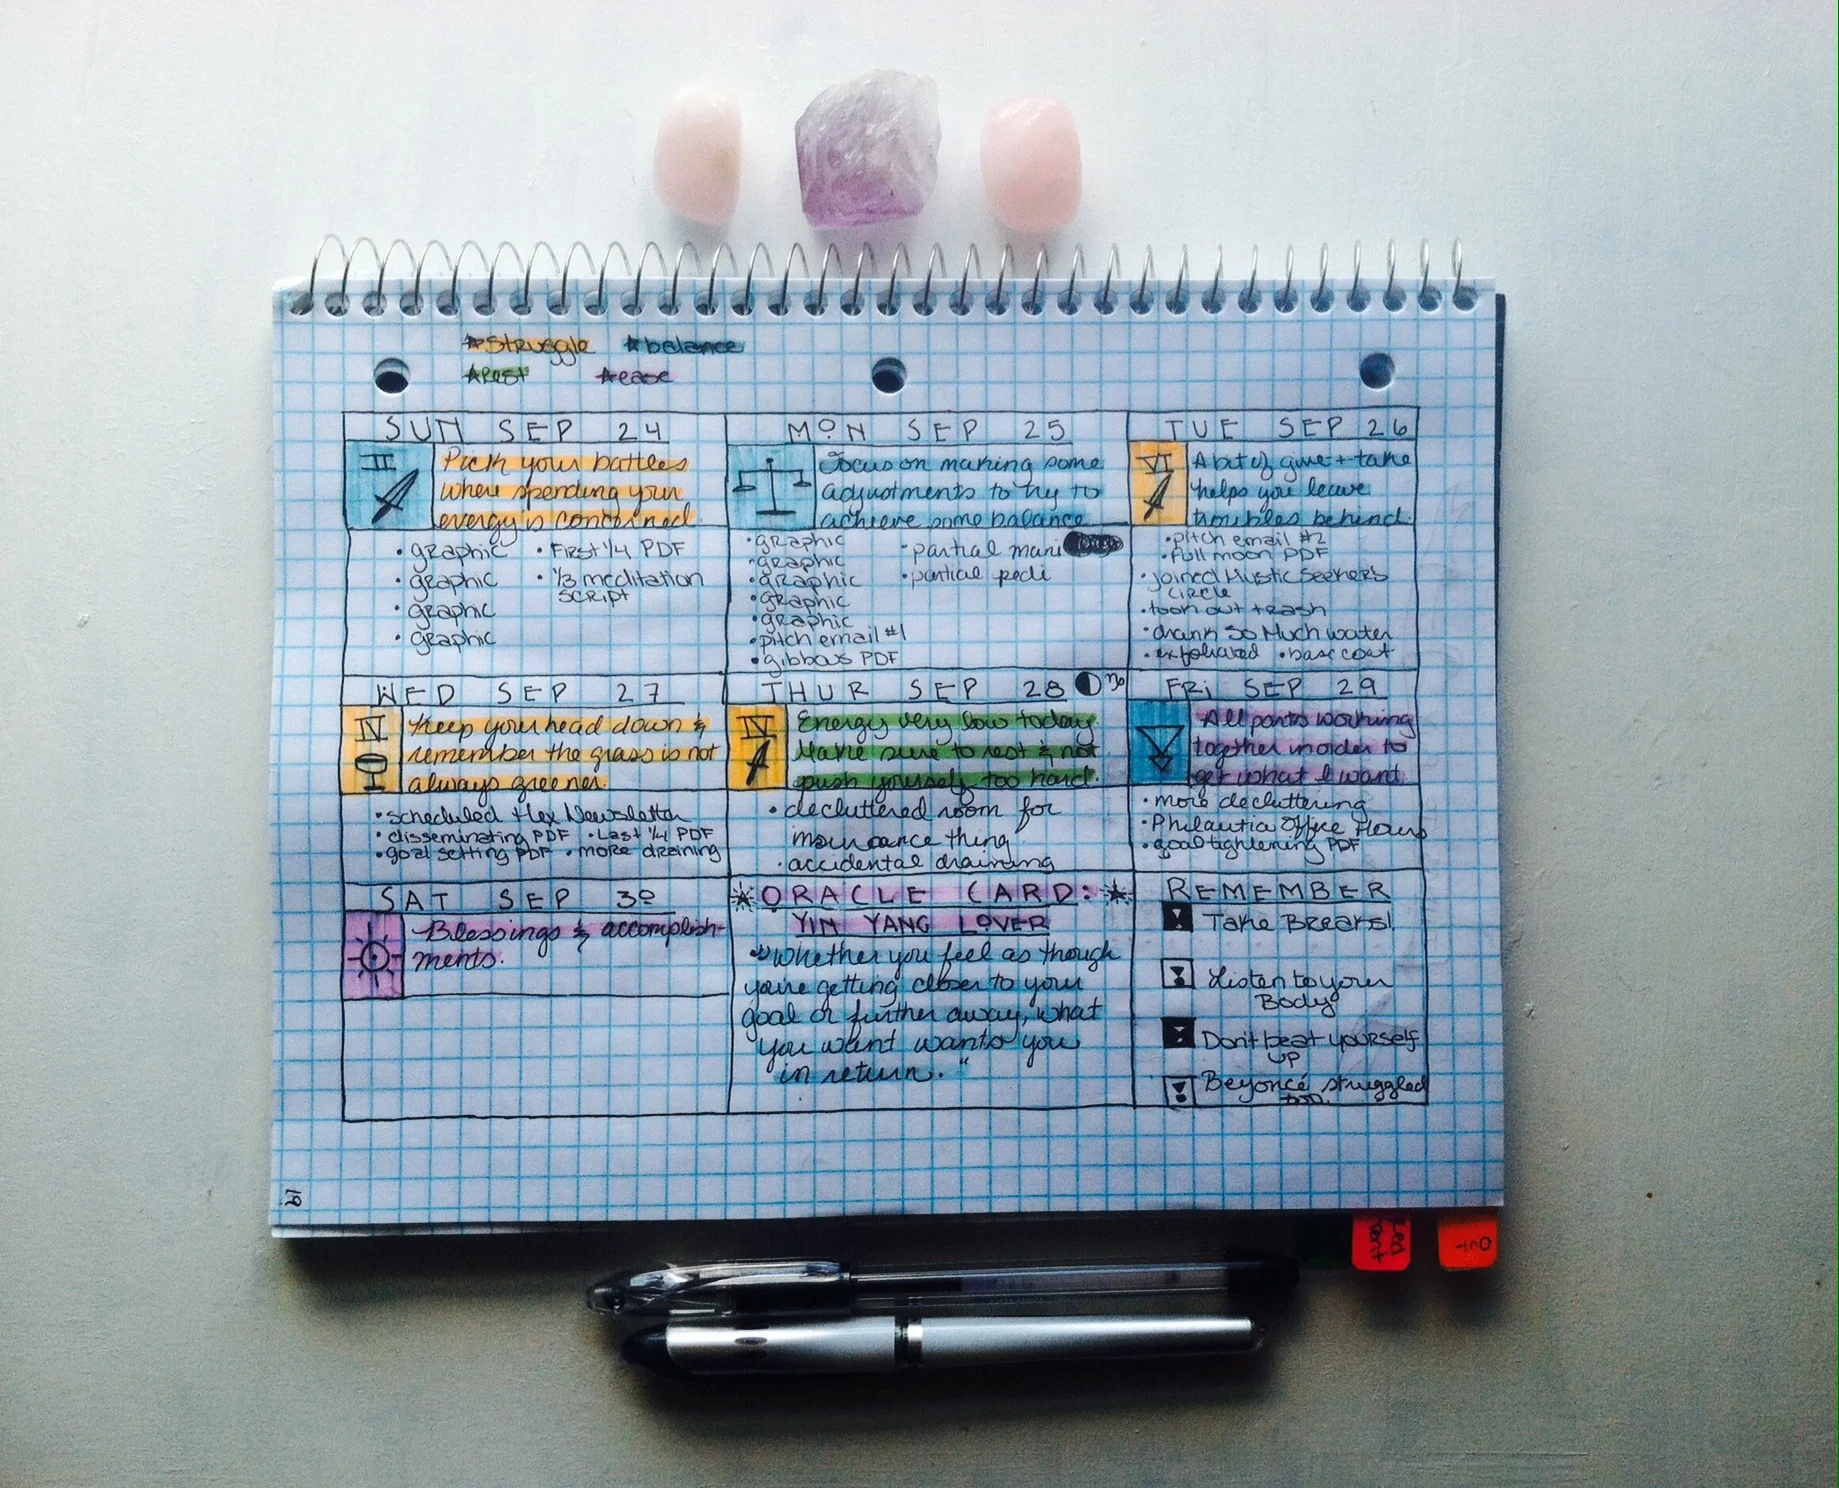 *struggle *balance
*Rest *ease
SUN SEP 24
II
Pick your battles
where spending your
energy is concerned.
• graphic
• graphic
• graphic
• graphic
• First 1/4 PDF
• 1/3 meditation
script
MON SEP 25
Focus on making some
adjustments to try to
achieve some balance
• graphic
• graphic
• graphic
• graphic
• graphic
• pitch email #1
• gibbous PDF
• partial mani
• partial pedi
TUE SEP 26
VI
A bit of give + take
helps you leave
troubles behind.
• pitch email #2
• full moon PDF
• joined Mystic Seekers
circle
• took out trash
• drank So Much water
• exfoliated • base coat
WED SEP 27
IV
Keep your head down &
remember the grass is not
always greener.
• scheduled Hex Newsletter
• disseminating PDF • Last 1/4 PDF
• goal setting PDF • more draining
THUR SEP 28
IV
Energy very low today.
Make sure to rest & not
push yourself too hard.
• decluttered room for
insurance thing
• accidental draining
FRI SEP 29
All parts working
together in order to
get what I want
• more decluttering
• Philautia Office Hours
• goal tightening PDF
SAT SEP 30
Blessings & accomplish-
ments.
*ORACLE CARD:*
YIN YANG LOVER
"Whether you feel as though
you're getting closer to your
goal or further away, what
you want wants you
in return."
REMEMBER
Take Breaks!
Listen to your
Body
Don't beat yourself
up
Beyoncé struggled
too.
Out